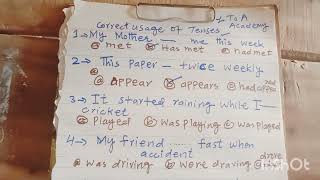 Correct usage of Tenses
To A
Academy
1→ My Mother — me this week
ⓐ met ⓑ Has met ⓒ had met
2→ This paper — twice weekly
ⓐ appear ⓑ appears ⓒ had
3→ It started raining while I—
cricket
ⓐ played ⓑ was playing ⓒ was played
4→ My friend ...... fast when
accident
ⓐ was driving ⓑ were draving drove